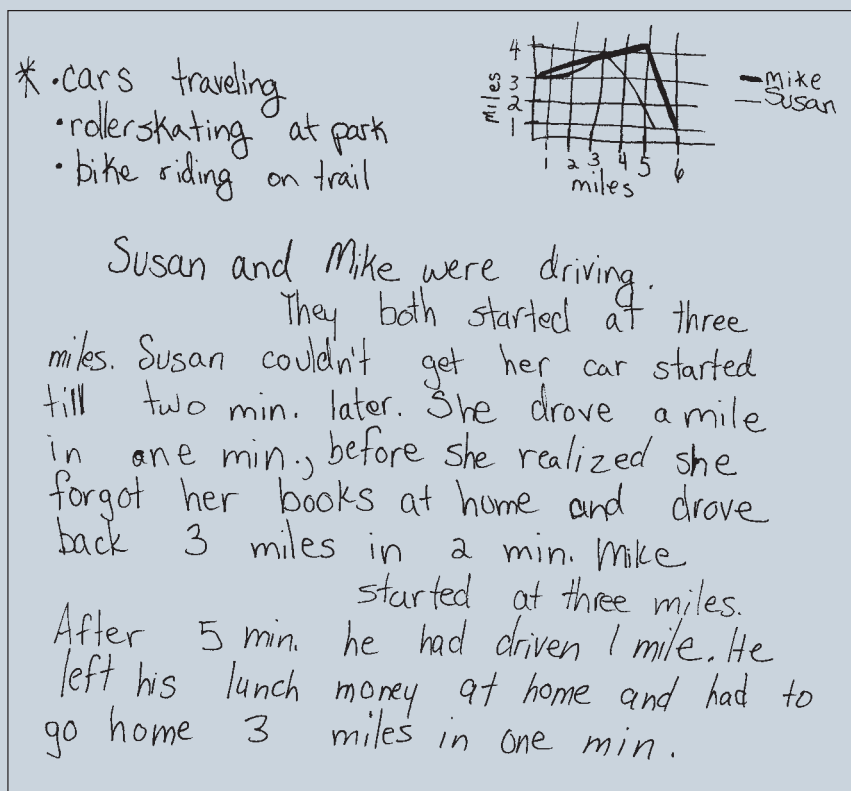 * • cars traveling
• rollerskating at park
• bike riding on trail
4
3
2
1
miles
1 2 3 4 5 6
miles
Mike
Susan
Susan and Mike were driving.
They both started at three
miles. Susan couldn't get her car started
till two min. later. She drove a mile
in one min., before she realized she
forgot her books at home and drove
back 3 miles in 2 min. Mike
started at three miles.
After 5 min. he had driven 1 mile. He
left his lunch money at home and had to
go home 3 miles in one min.